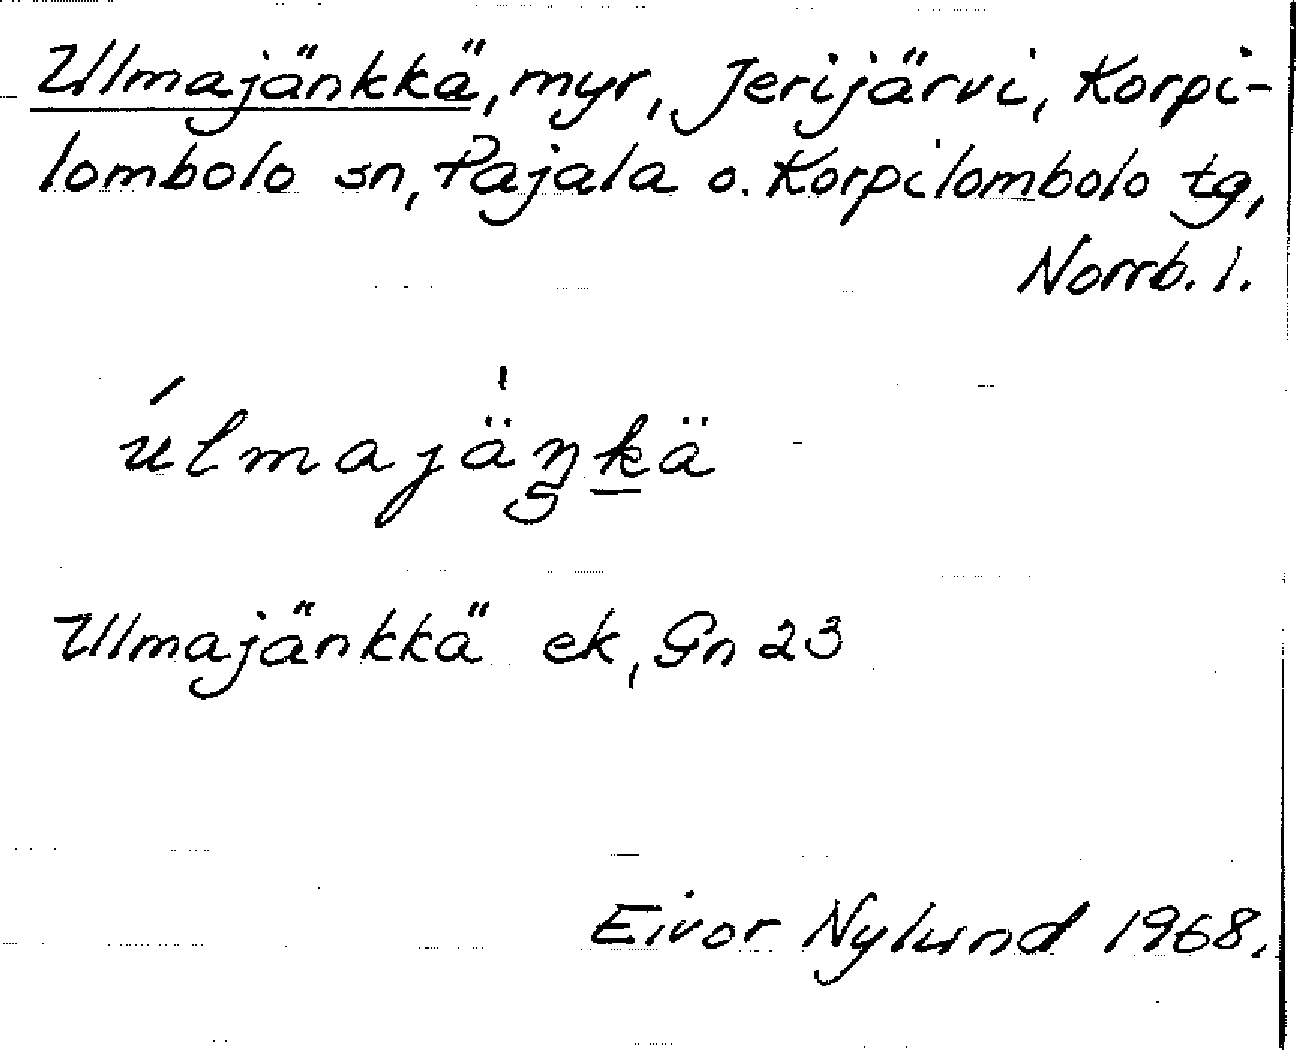 Ulmajänkkä, myr, Jerijärvi, Korpi-
lombolo sn, Pajala o. Korpilombolo tg,
Norrb. l.
úlmajä̍ŋkä
Ulmajänkkä ek, Gn 23
Eivor Nylund 1968.